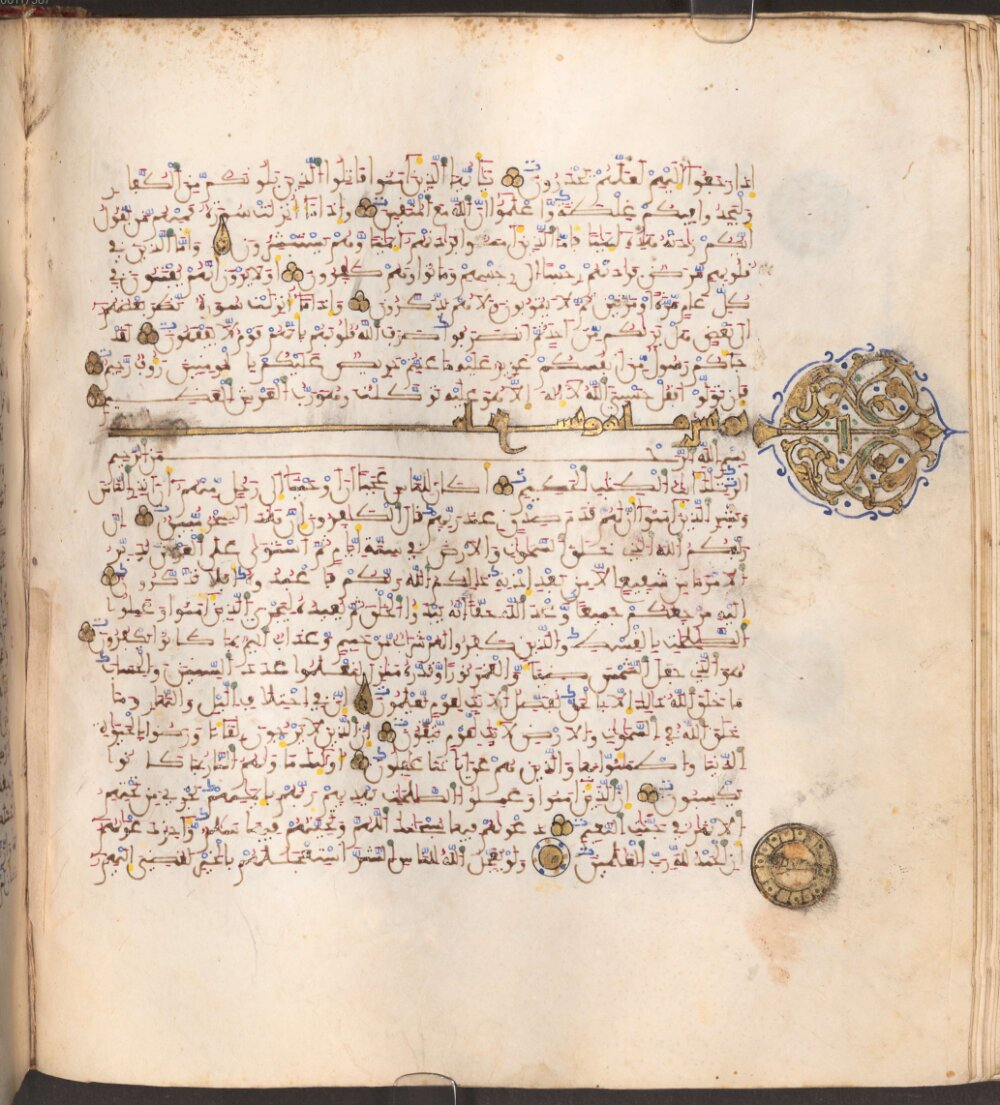 اذا رجعوا اليهم لعلهم يحذرون يايها الذين امنوا قاتلوا الذين يلونكم من الكفار
وليجدوا فيكم غلظة واعلموا ان الله مع المتقين واذا ما انزلت سورة فمنهم من يقول
ايكم زادته هذه ايمنا فاما الذين امنوا فزادتهم ايمنا وهم يستبشرون واما الذين في
قلوبهم مرض فزادتهم رجسا الى رجسهم وماتوا وهم كفرون اولا يرون انهم يفتنون في
كل عام مرة او مرتين ثم لا يتوبون ولا هم يذكرون واذا ما انزلت سورة نظر بعضهم
الى بعض هل يريكم من احد ثم انصرفوا صرف الله قلوبهم بانهم قوم لا يفقهون لقد
جاكم رسول من انفسكم عزيز عليه ما عنتم حريص عليكم بالمومنين روف رحيم
فان تولوا فقل حسبي الله لا اله الا هو عليه توكلت وهو رب العرش العظيم
سورة يونس
بسم الله الرحمن الرحيم
الر تلك ايت الكتب الحكيم اكان للناس عجبا ان اوحينا الى رجل منهم ان انذر الناس
وبشر الذين امنوا ان لهم قدم صدق عند ربهم قال الكفرون ان هذا لسحر مبين ان
ربكم الله الذي خلق السموت والارض في ستة ايام ثم استوى على العرش يدبر
الامر ما من شفيع الا من بعد اذنه ذلكم الله ربكم فاعبدوه افلا تذكرون
اليه مرجعكم جميعا وعد الله حقا انه يبدوا الخلق ثم يعيده ليجزي الذين امنوا وعملوا
الصلحت بالقسط والذين كفروا لهم شراب من حميم وعذاب اليم بما كانوا يكفرون
هو الذي جعل الشمس ضيا والقمر نورا وقدره منازل لتعلموا عدد السنين والحساب
ما خلق الله ذلك الا بالحق نفصل الايت لقوم يعلمون ان في اختلف اليل والنهار وما
خلق الله في السموت والارض لايت لقوم يتقون ان الذين لا يرجون لقانا ورضوا بالحيوة
الدنيا واطمانوا بها والذين هم عن ايتنا غفلون اوليك ماويهم النار بما كانوا
يكسبون ان الذين امنوا وعملوا الصلحت يهديهم ربهم بايمنهم تجري من تحتهم
الانهر في جنت النعيم دعويهم فيها سبحنك اللهم وتحيتهم فيها سلم واخر دعويهم
ان الحمد لله رب العلمين ولو يعجل الله للناس الشر استعجالهم بالخير لقضي اليهم